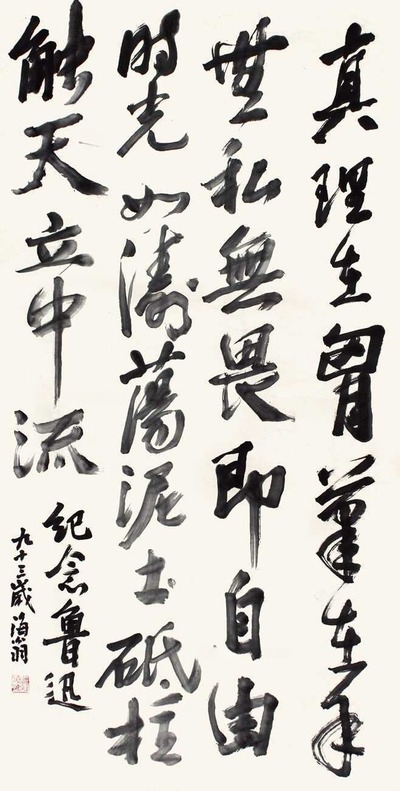 真理在胷筆在手
無私無畏即自由
时光如濤蕩泥土砥柱
触天立中流
紀念魯迅
九十三歲海翁